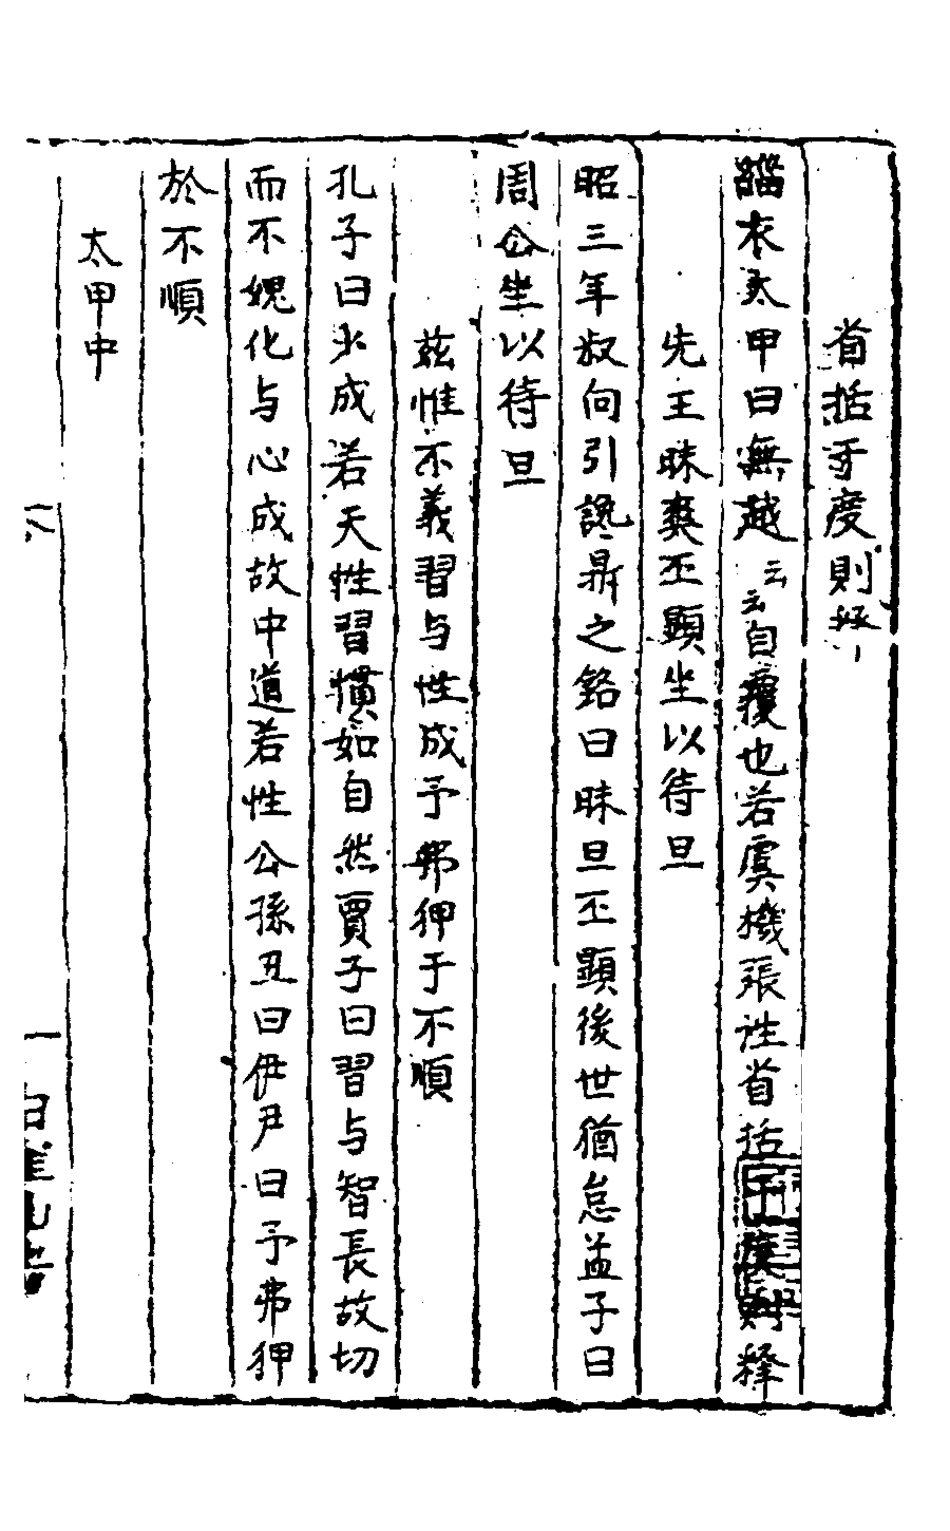 省括于度則释
緇衣太甲曰無越云云自覆也若虞機張往省括于度則释
先王昧爽丕顯坐以待旦
昭三年叔向引讒鼎之銘曰昧旦丕顯後世猶怠孟子曰
周公坐以待旦
茲惟不義習与性成予弗狎于不順
孔子曰少成若天性習慣如自然賈子曰習与智長故切
而不媿化与心成故中道若性公孫丑曰伊尹曰予弗狎
於不順
太甲中